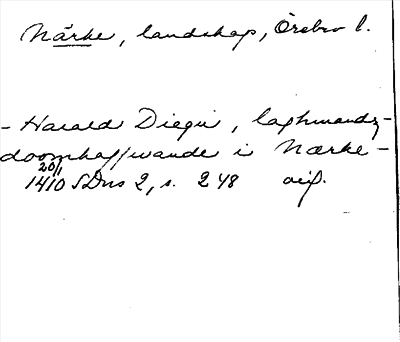 Närke, landskap, Örebro l.
- Harald Diegn, laghmandz-
doomhaffwande i Nærke -
20/1
1410 SDns 2, s. 248 orig.